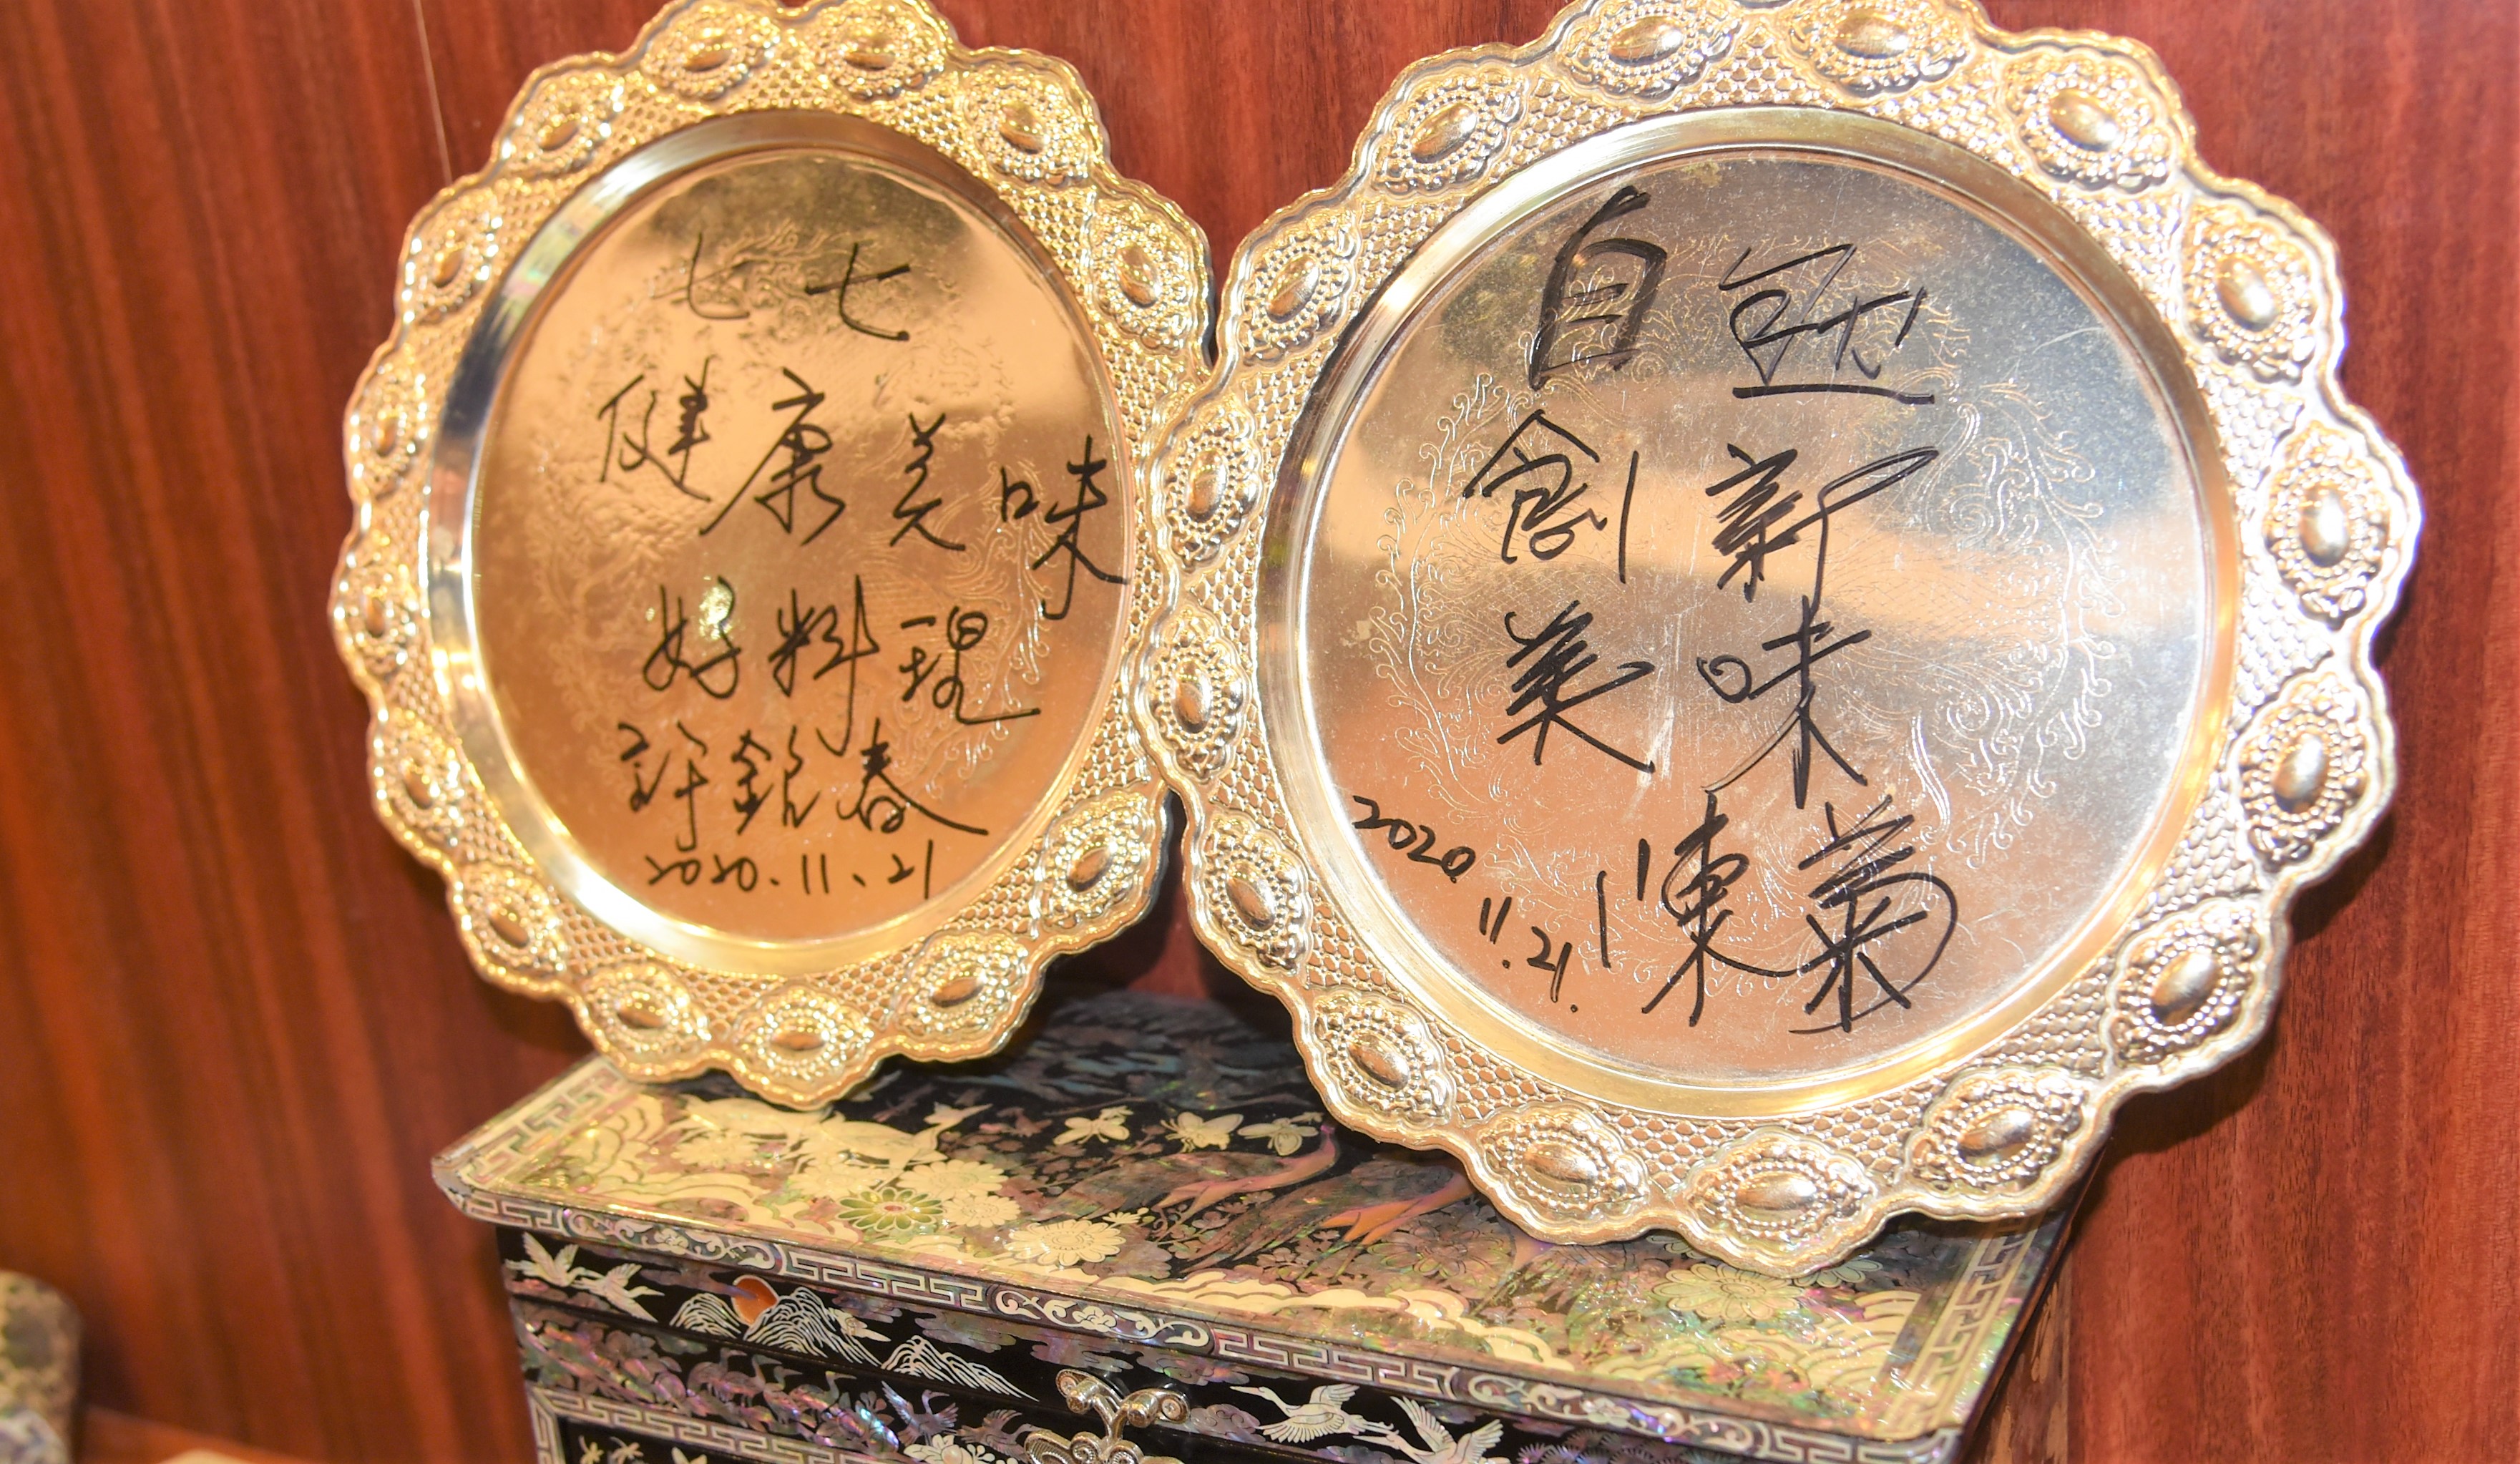 七七
健康美味
好料理
許銘春
2020.11.21
自然
創新
美味
陳菊
2020.
11.21.